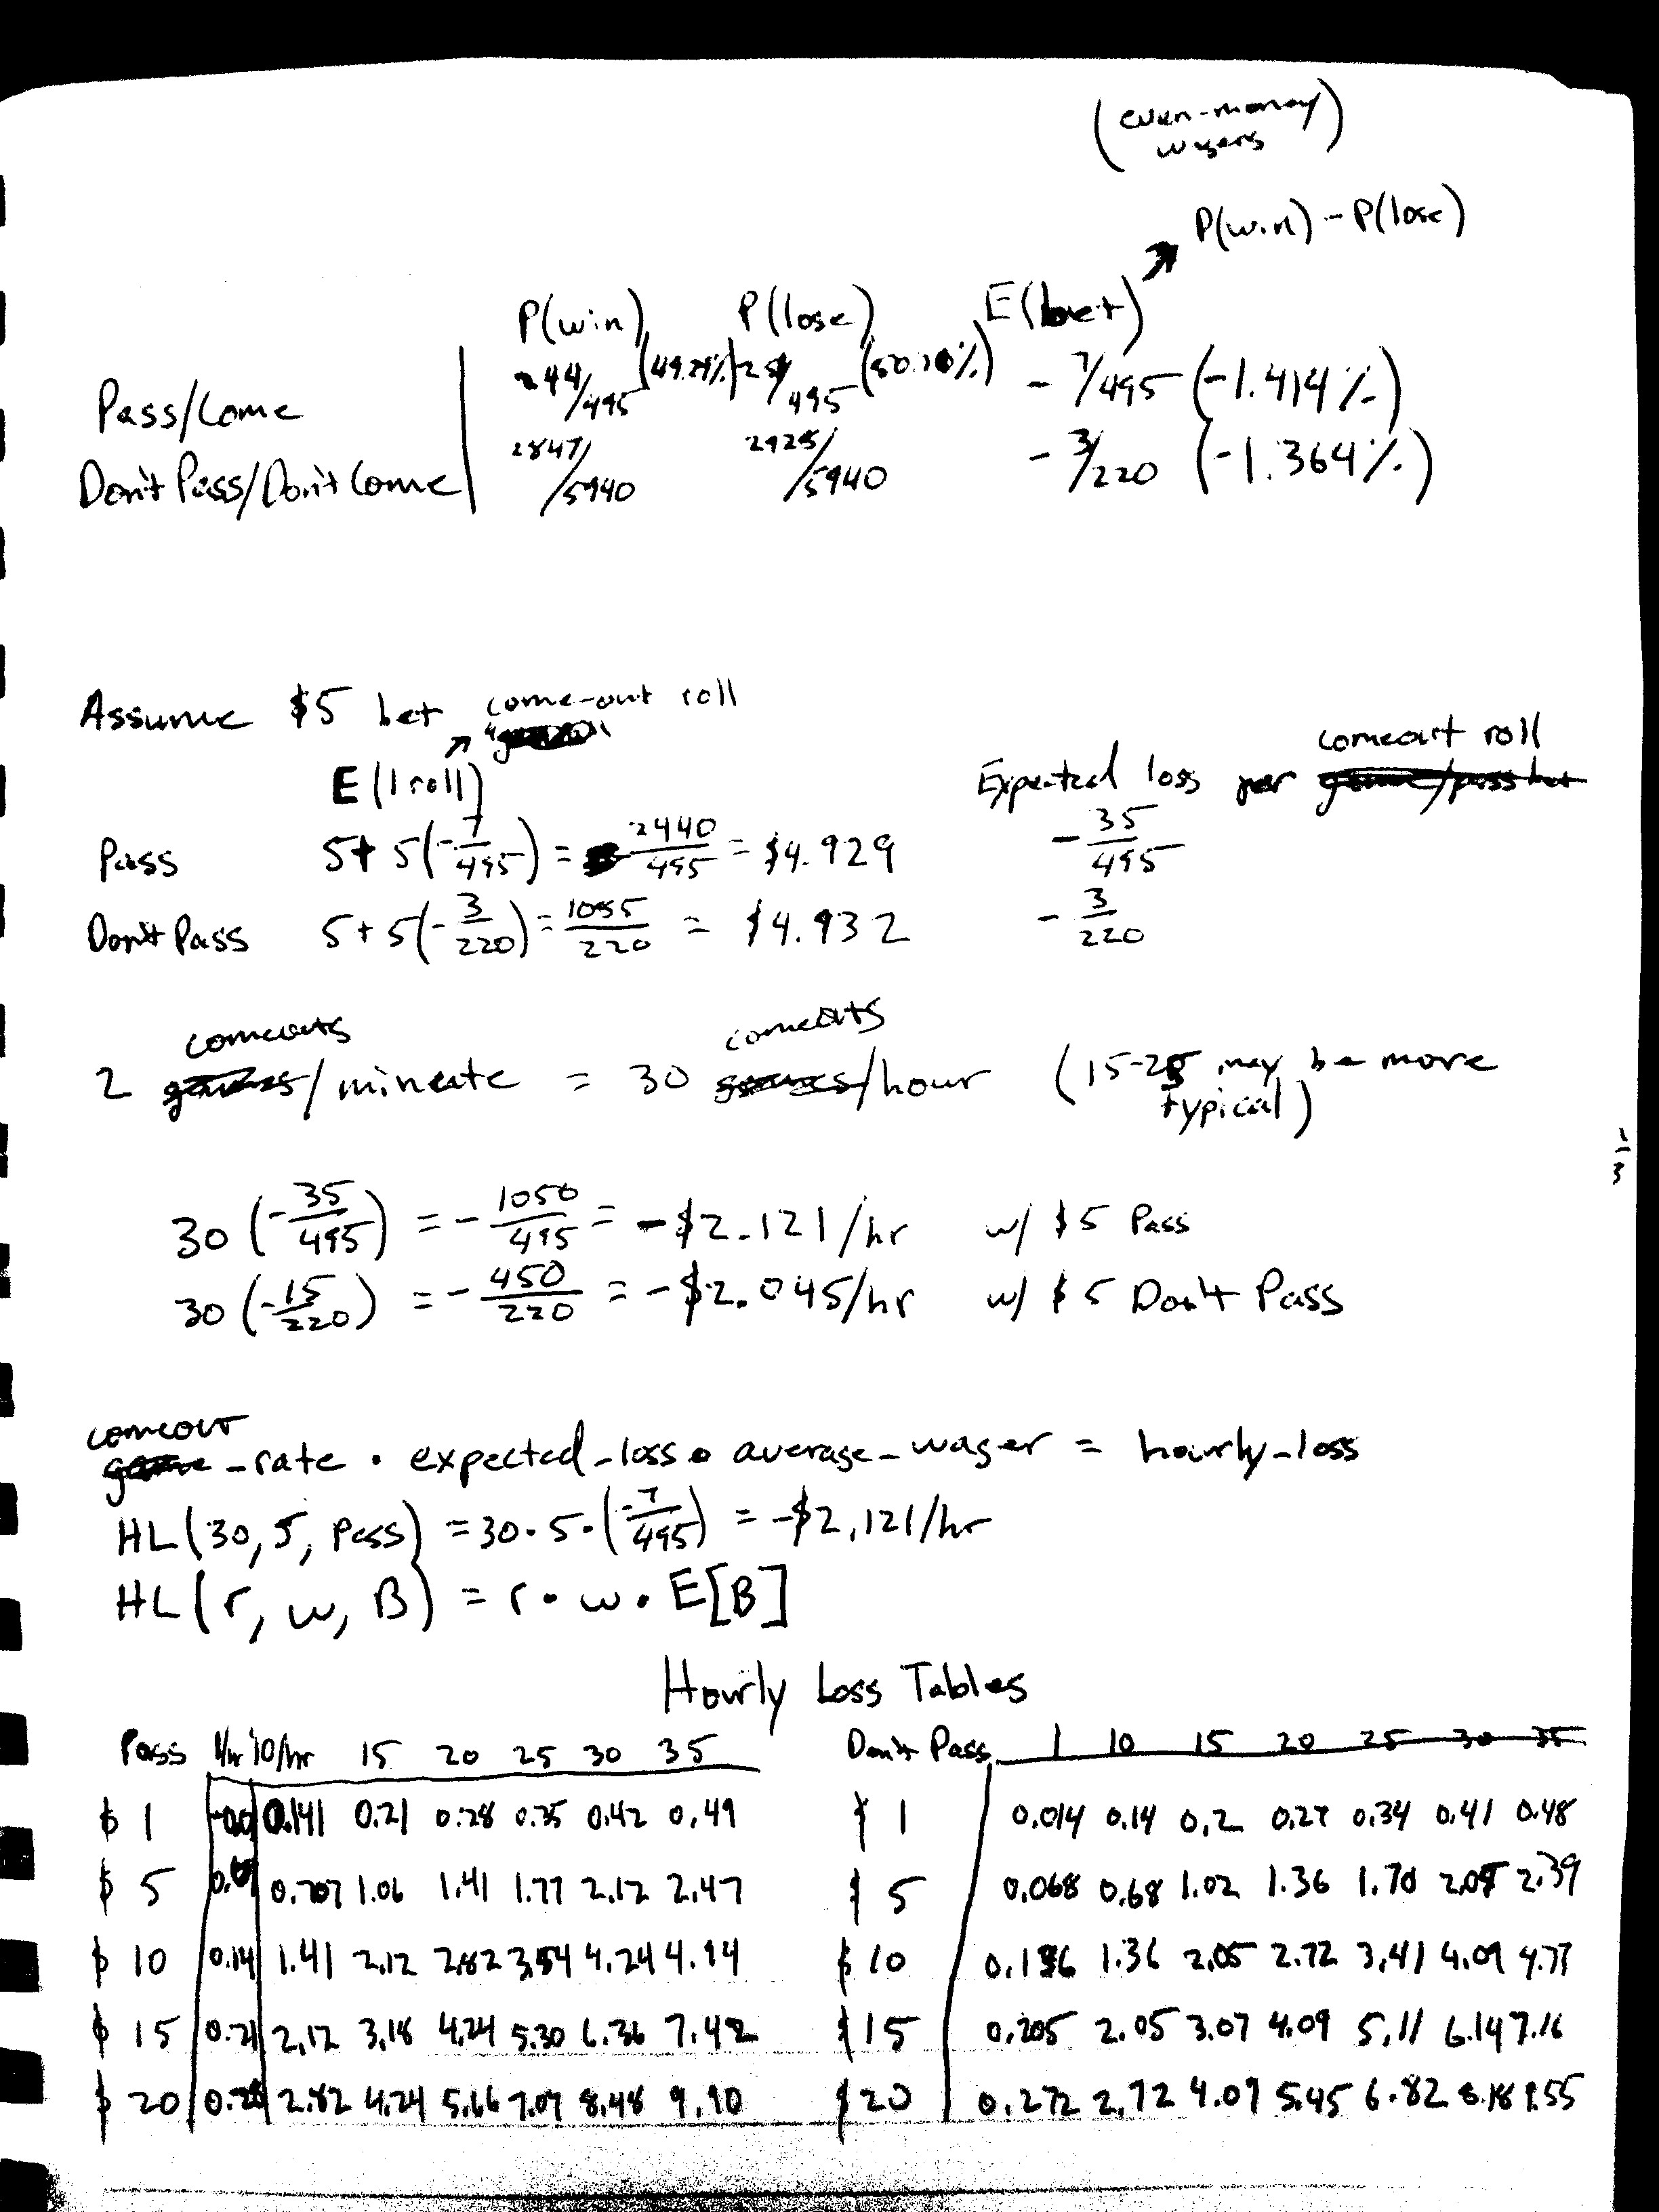 (even-money
wagers)
P(win) - P(lose)
P(win) P(lose) E(bet)
Pass/Come 244/495 (49.29%) 251/495 (50.70%) - 7/495 (-1.414%)
Don't Pass/Don't Come 2847/5940 2928/5940 - 3/220 (-1.364%)
Assume $5 bet come-out roll
E(1 roll) Expected loss per comeout roll
Pass 5+ 5(-7/495) = 2440/495 = $4.929 - 35/495
Don't Pass 5+5(-3/220) = 1085/220 = $4.932 - 3/220
comeouts comeouts
2 games/mineute = 30 games/hour (15-25 may be more
typical)
1/3
30 (-35/495) = - 1050/495 = -$2.121/hr w/ $5 Pass
30 (-15/220) = - 450/220 = -$2.045/hr w/ $5 Don't Pass
comeout
game_rate • expected_loss • average_wager = hourly_loss
HL(30, 5, Pass) = 30•5•(-7/495) = -$2.121/hr
HL(r, w, B) = r • w • E[B]
Hourly Loss Tables
Pass 1/hr 10/hr 15 20 25 30 35
$ 1 0.141 0.21 0.28 0.35 0.42 0.49
$ 5 0.707 1.06 1.41 1.77 2.12 2.47
$ 10 0.14 1.41 2.12 2.82 3.54 4.24 4.94
$ 15 0.21 2.12 3.18 4.24 5.30 6.36 7.42
$ 20 0.28 2.82 4.24 5.66 7.07 8.48 9.90
Don't Pass 1 10 15 20 25 30 35
$ 1 0.014 0.14 0.2 0.27 0.34 0.41 0.48
$ 5 0.068 0.68 1.02 1.36 1.70 2.05 2.39
$ 10 0.136 1.36 2.05 2.72 3.41 4.09 4.77
$ 15 0.205 2.05 3.07 4.09 5.11 6.14 7.16
$ 20 0.272 2.72 4.09 5.45 6.82 8.18 9.55